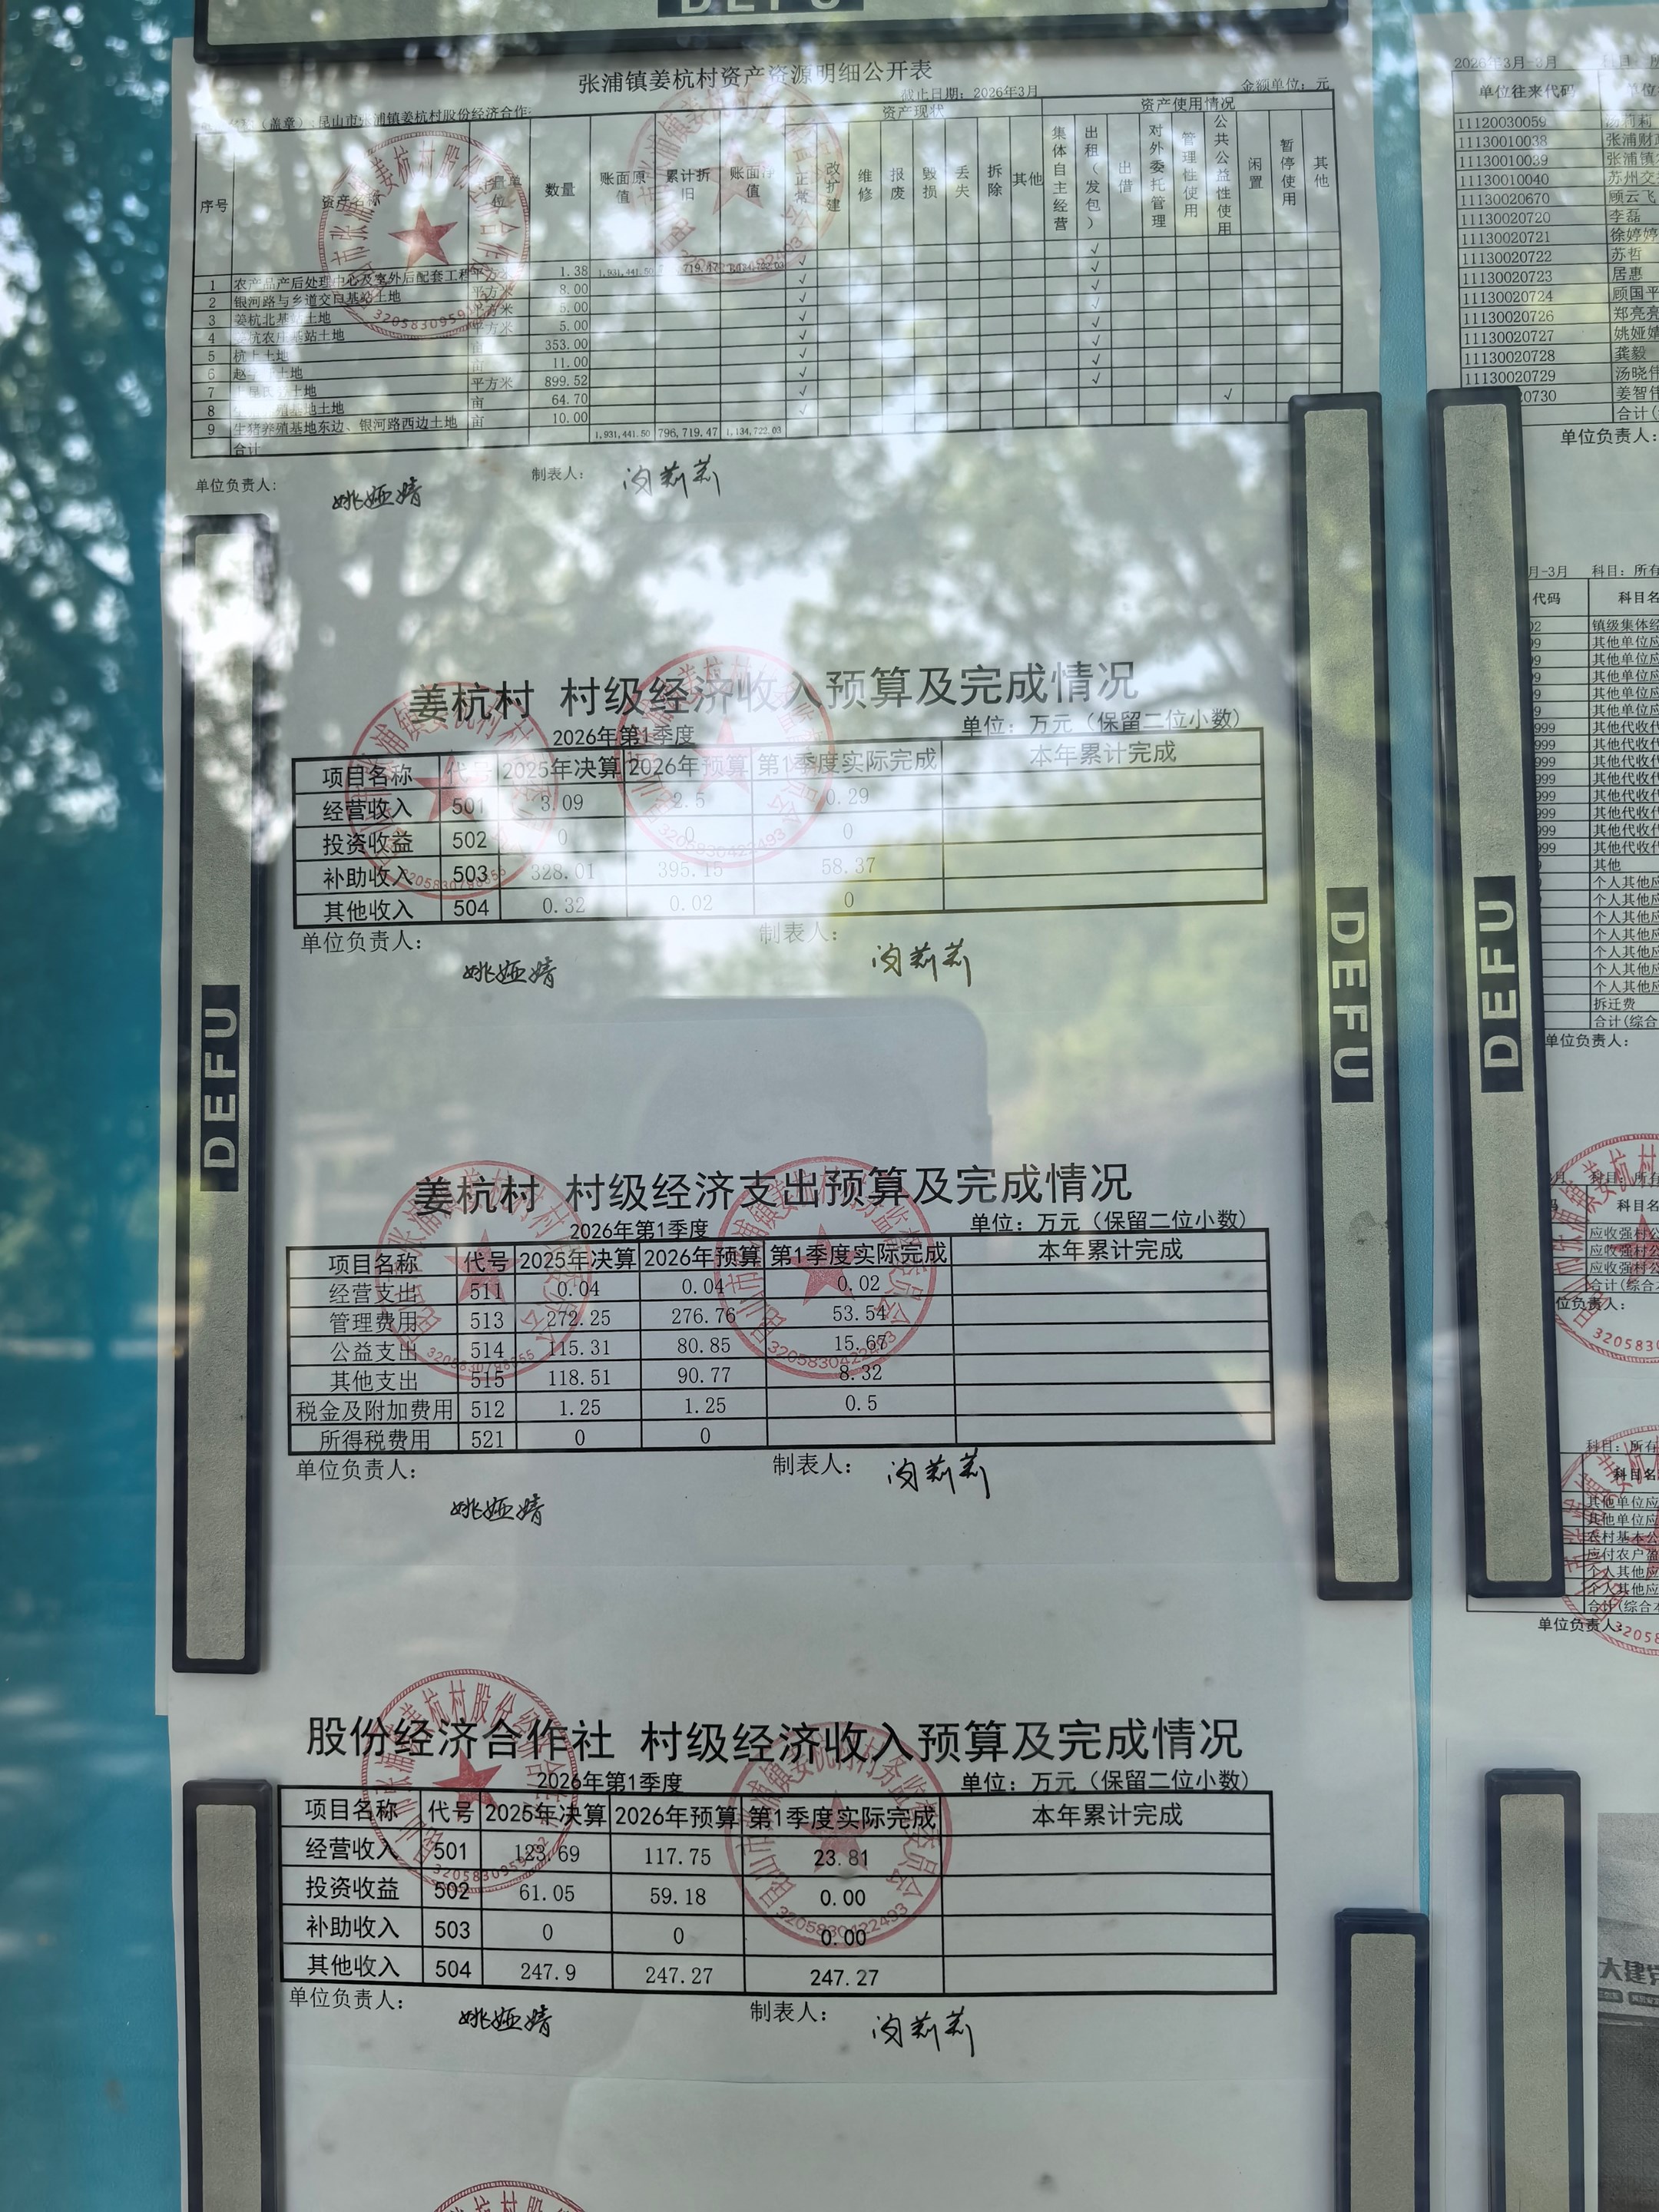 DEFU
张浦镇姜杭村资产资源明细公开表
截止日期：2026年3月
金额单位：元
（盖章）：昆山市张浦镇姜杭村股份经济合作
资产现状 资产使用情况
序号 资产名称 数量 账面原值 累计折旧 账面净值 正常 改扩建 维修 报废 毁损 丢失 拆除 其他 集体自主经营 出租（发包） 出借 对外委托管理 管理性使用 公共公益性使用 闲置 暂停使用 其他
1 农产品产后处理中心及室外后配套工程 1.38 1,931,441.50 √ √
2 银河路与乡道交口基站土地 平方米 8.00 √ √
3 姜杭北基站土地 平方米 5.00 √ √
4 姜杭农庄基站土地 平方米 5.00 √ √
5 杭上土地 亩 353.00 √ √
6 土地 亩 11.00 √ √
7 土地 平方米 899.52 √ √
8 养殖基地土地 亩 64.70 √ √
9 生猪养殖基地东边、银河路西边土地 亩 10.00 √ √
合计 1,931,441.50 796,719.47 1,134,722.03
单位负责人： 姚娅婧 制表人： 莉莉
姜杭村 村级经济收入预算及完成情况
2026年第1季度 单位：万元（保留二位小数）
项目名称 代号 2025年决算 2026年预算 第1季度实际完成 本年累计完成
经营收入 501 3.09 2.5 0.29
投资收益 502 0 0 0
补助收入 503 328.01 395.15 58.37
其他收入 504 0.32 0.02 0
单位负责人： 姚娅婧 制表人： 莉莉
姜杭村 村级经济支出预算及完成情况
2026年第1季度 单位：万元（保留二位小数）
项目名称 代号 2025年决算 2026年预算 第1季度实际完成 本年累计完成
经营支出 511 0.04 0.04 0.02
管理费用 513 272.25 276.76 53.54
公益支出 514 115.31 80.85 15.67
其他支出 515 118.51 90.77 8.32
税金及附加费用 512 1.25 1.25 0.5
所得税费用 521 0 0
单位负责人： 姚娅婧 制表人： 莉莉
股份经济合作社 村级经济收入预算及完成情况
2026年第1季度 单位：万元（保留二位小数）
项目名称 代号 2025年决算 2026年预算 第1季度实际完成 本年累计完成
经营收入 501 123.69 117.75 23.81
投资收益 502 61.05 59.18 0.00
补助收入 503 0 0 0.00
其他收入 504 247.9 247.27 247.27
单位负责人： 姚娅婧 制表人： 莉莉
DEFU
DEFU
DEFU
2026年3月-3月
单位往来代码
11120030059 莉莉
11130010038 张浦财政
11130010039 张浦镇
11130010040 苏州交
11130020670 顾云飞
11130020720 李磊
11130020721 徐婷婷
11130020722 苏哲
11130020723 居惠
11130020724 顾国平
11130020726 郑亮亮
11130020727 姚娅婧
11130020728 龚毅
11130020729 汤晓伟
20730 姜智伟
合计（
单位负责人：
月-3月 科目：所有
代码 科目名
02 镇级集体经
其他单位应
其他单位应
其他单位应
其他单位应
其他单位应
999 其他代收代
999 其他代收代
999 其他代收代
999 其他代收代
999 其他代收代
999 其他代收代
999 其他代收代
999 其他代收代
其他
个人其他应
个人其他应
个人其他应
个人其他应
个人其他应
个人其他应
个人其他应
拆迁费
合计(综合
单位负责人：
科目名
应收强村公
应收强村公
应收强村公
合计(综合
位负责人：
科目：所有
科目名
其他单位应
其他单位应
农村基本公
应付农户盈
个人其他应
个人其他应
合计(综合
单位负责人：
大建